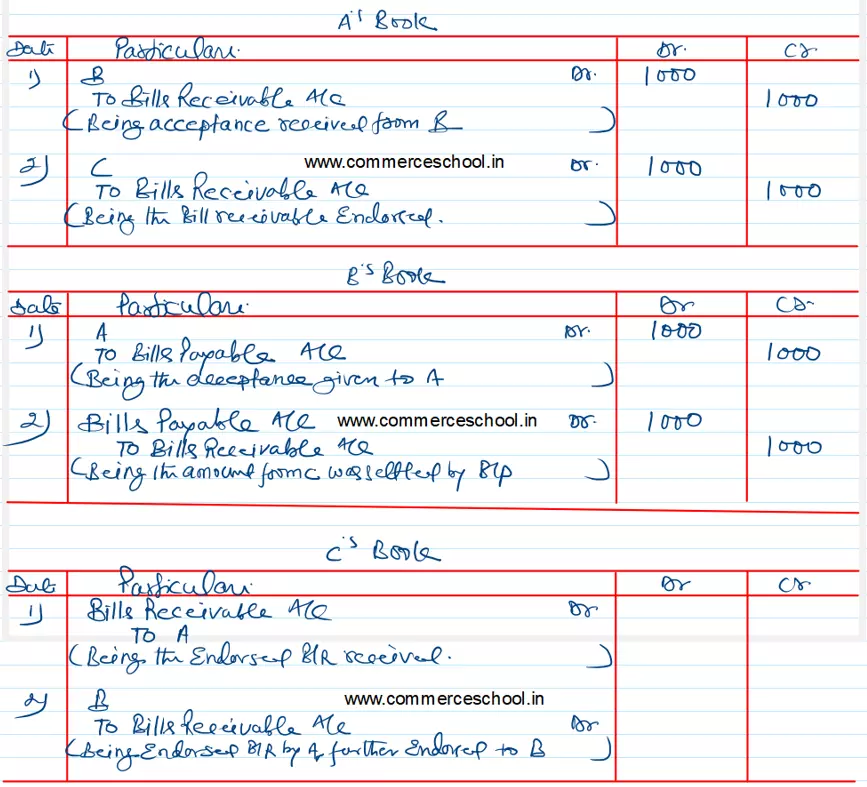 A's Book
Date Particulars. Dr. Cr
1) B Dr. 1000
To Bills Receivable A/C 1000
(Being acceptance received from B)
2) C www.commerceschool.in Dr. 1000
To Bills Receivable A/C 1000
(Being the Bill receivable Endorsed.)
B's Book
Date Particulars. Dr Cr
1) A Dr. 1000
To Bills Payable A/C 1000
(Being the acceptance given to A)
2) Bills Payable A/C www.commerceschool.in Dr. 1000
To Bills Receivable A/C 1000
(Being the amount from C was settled by B/P)
C's Book
Date Particulars. Dr Cr
1) Bills Receivable A/C Dr
To A
(Being the Endorsed B/R received.)
2) B www.commerceschool.in
To Bills Receivable A/C Dr
(Being Endorsed B/R by A, further Endorsed to B)